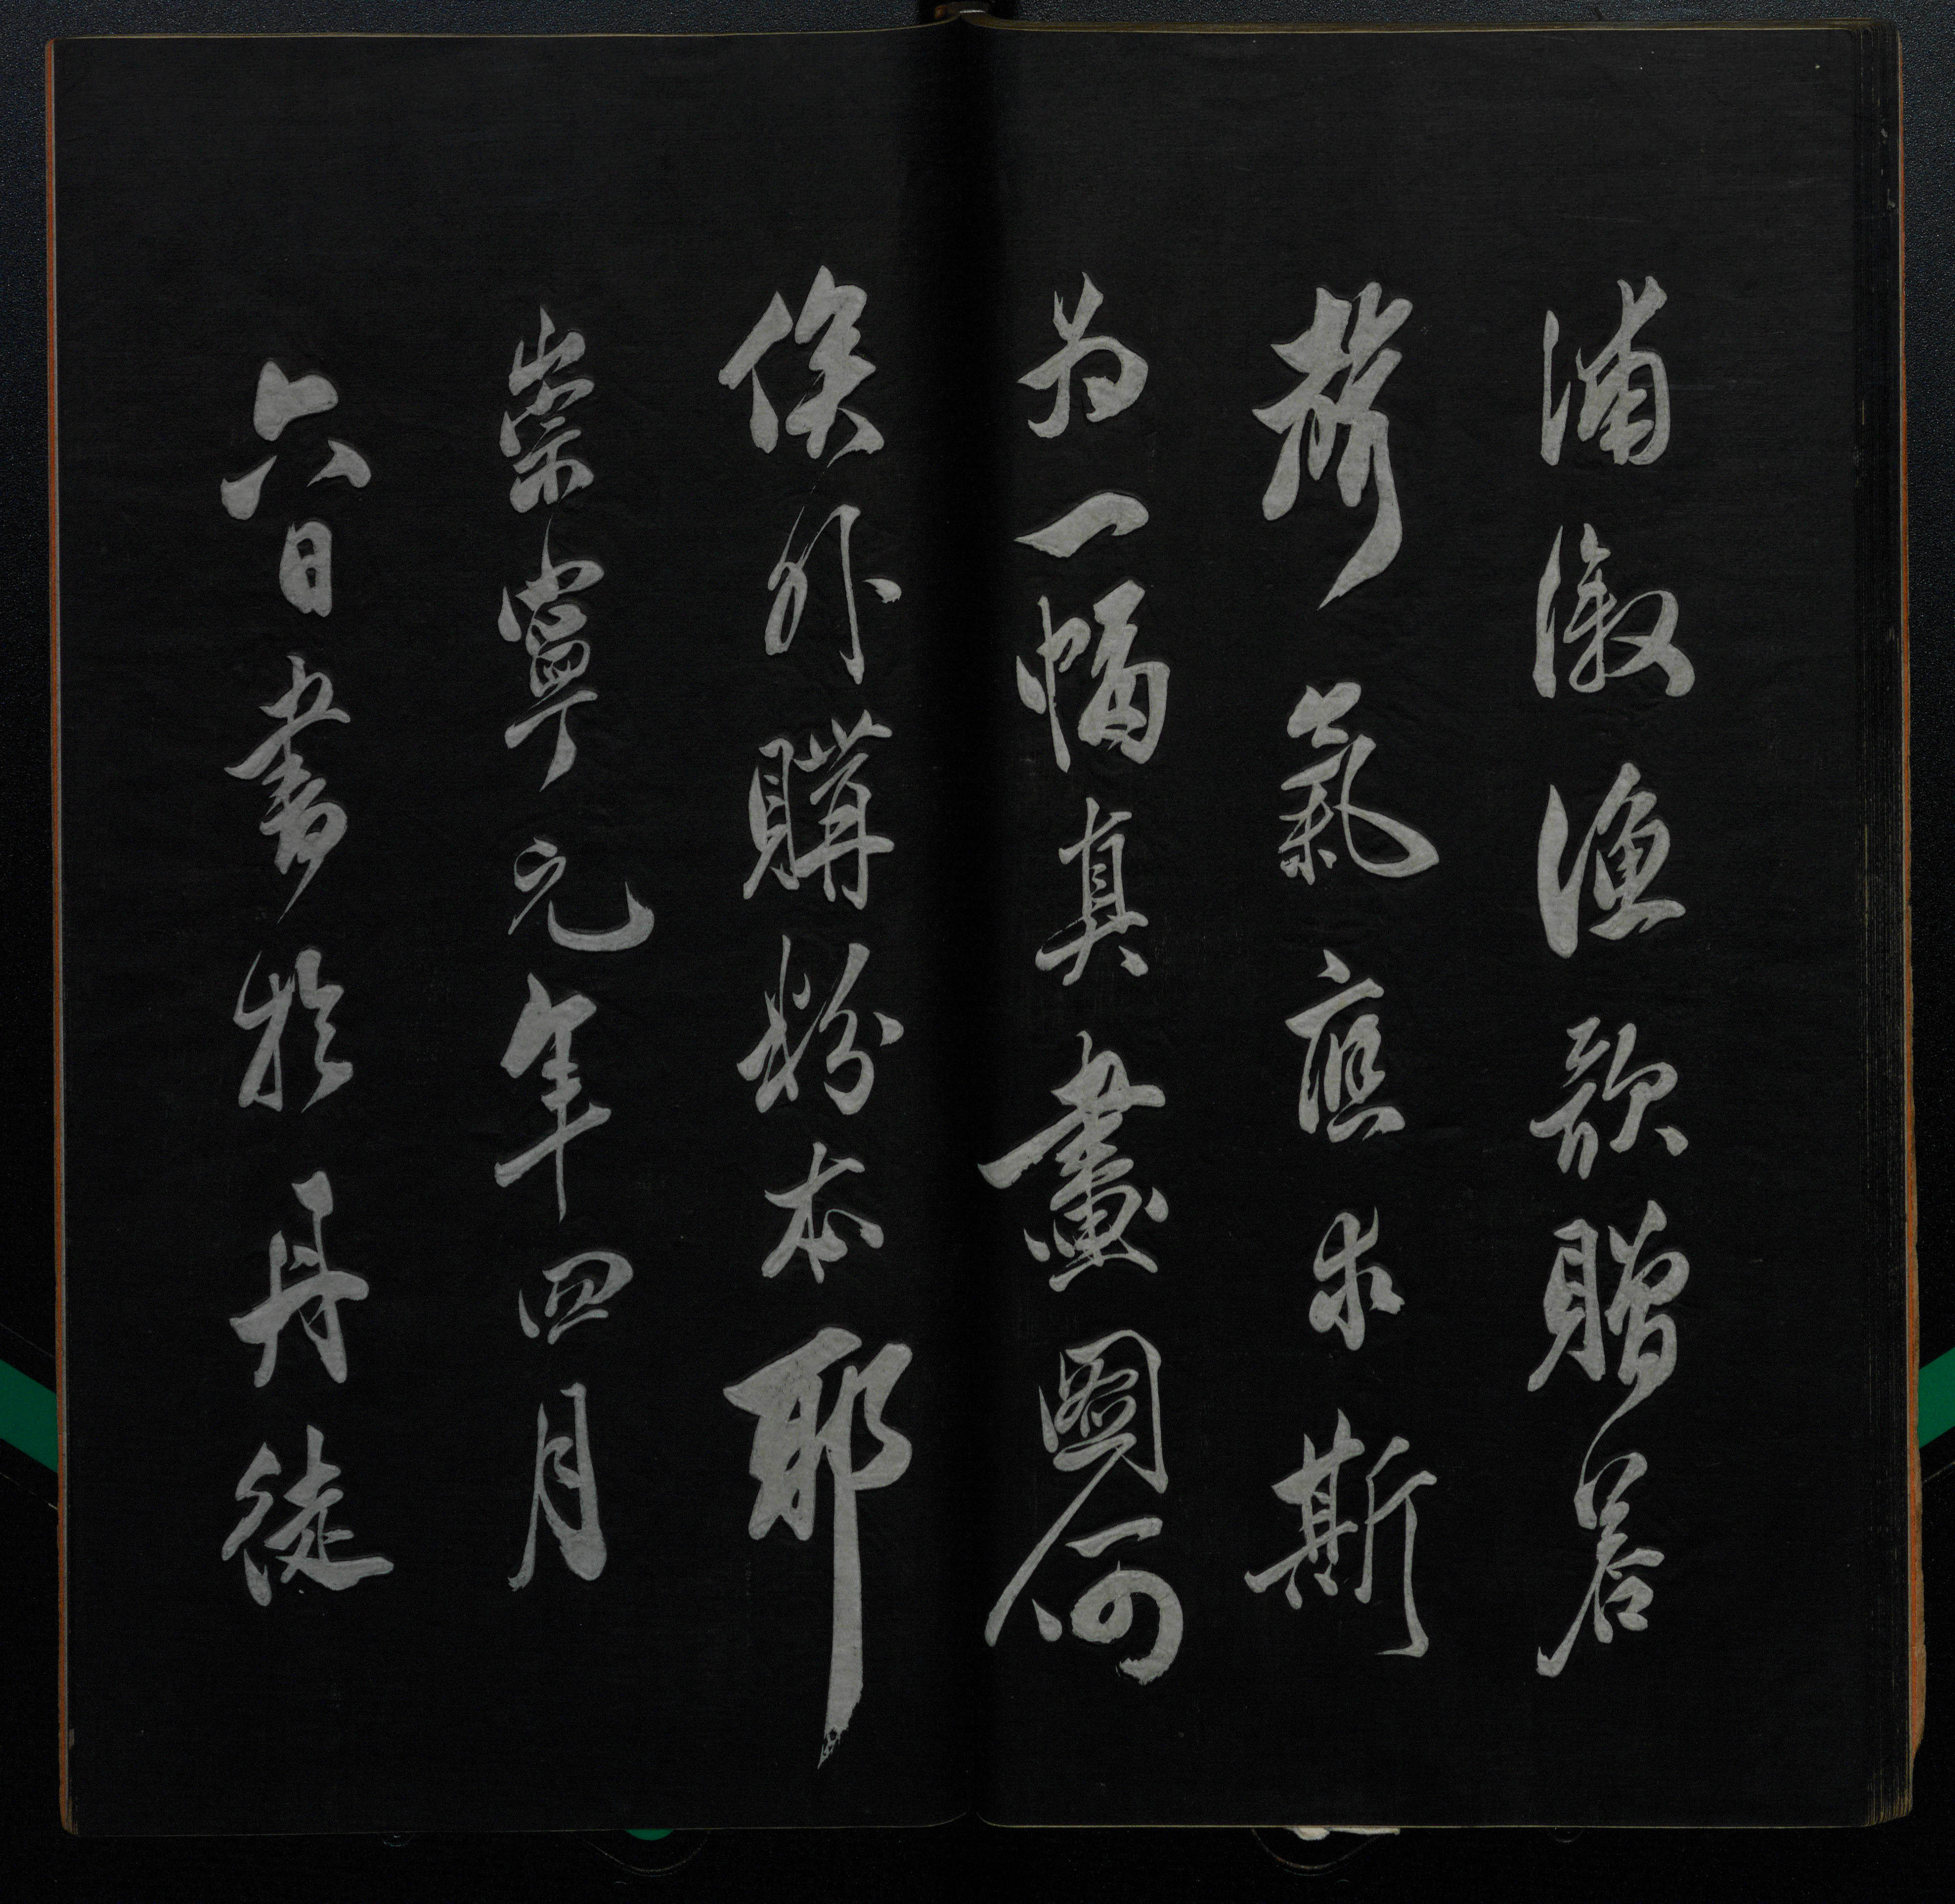 浦溆漁歌贈答
聲氣應求斯
為一幅真畫圖何
俟外購粉本耶
崇寧元年四月
六日書於丹徒